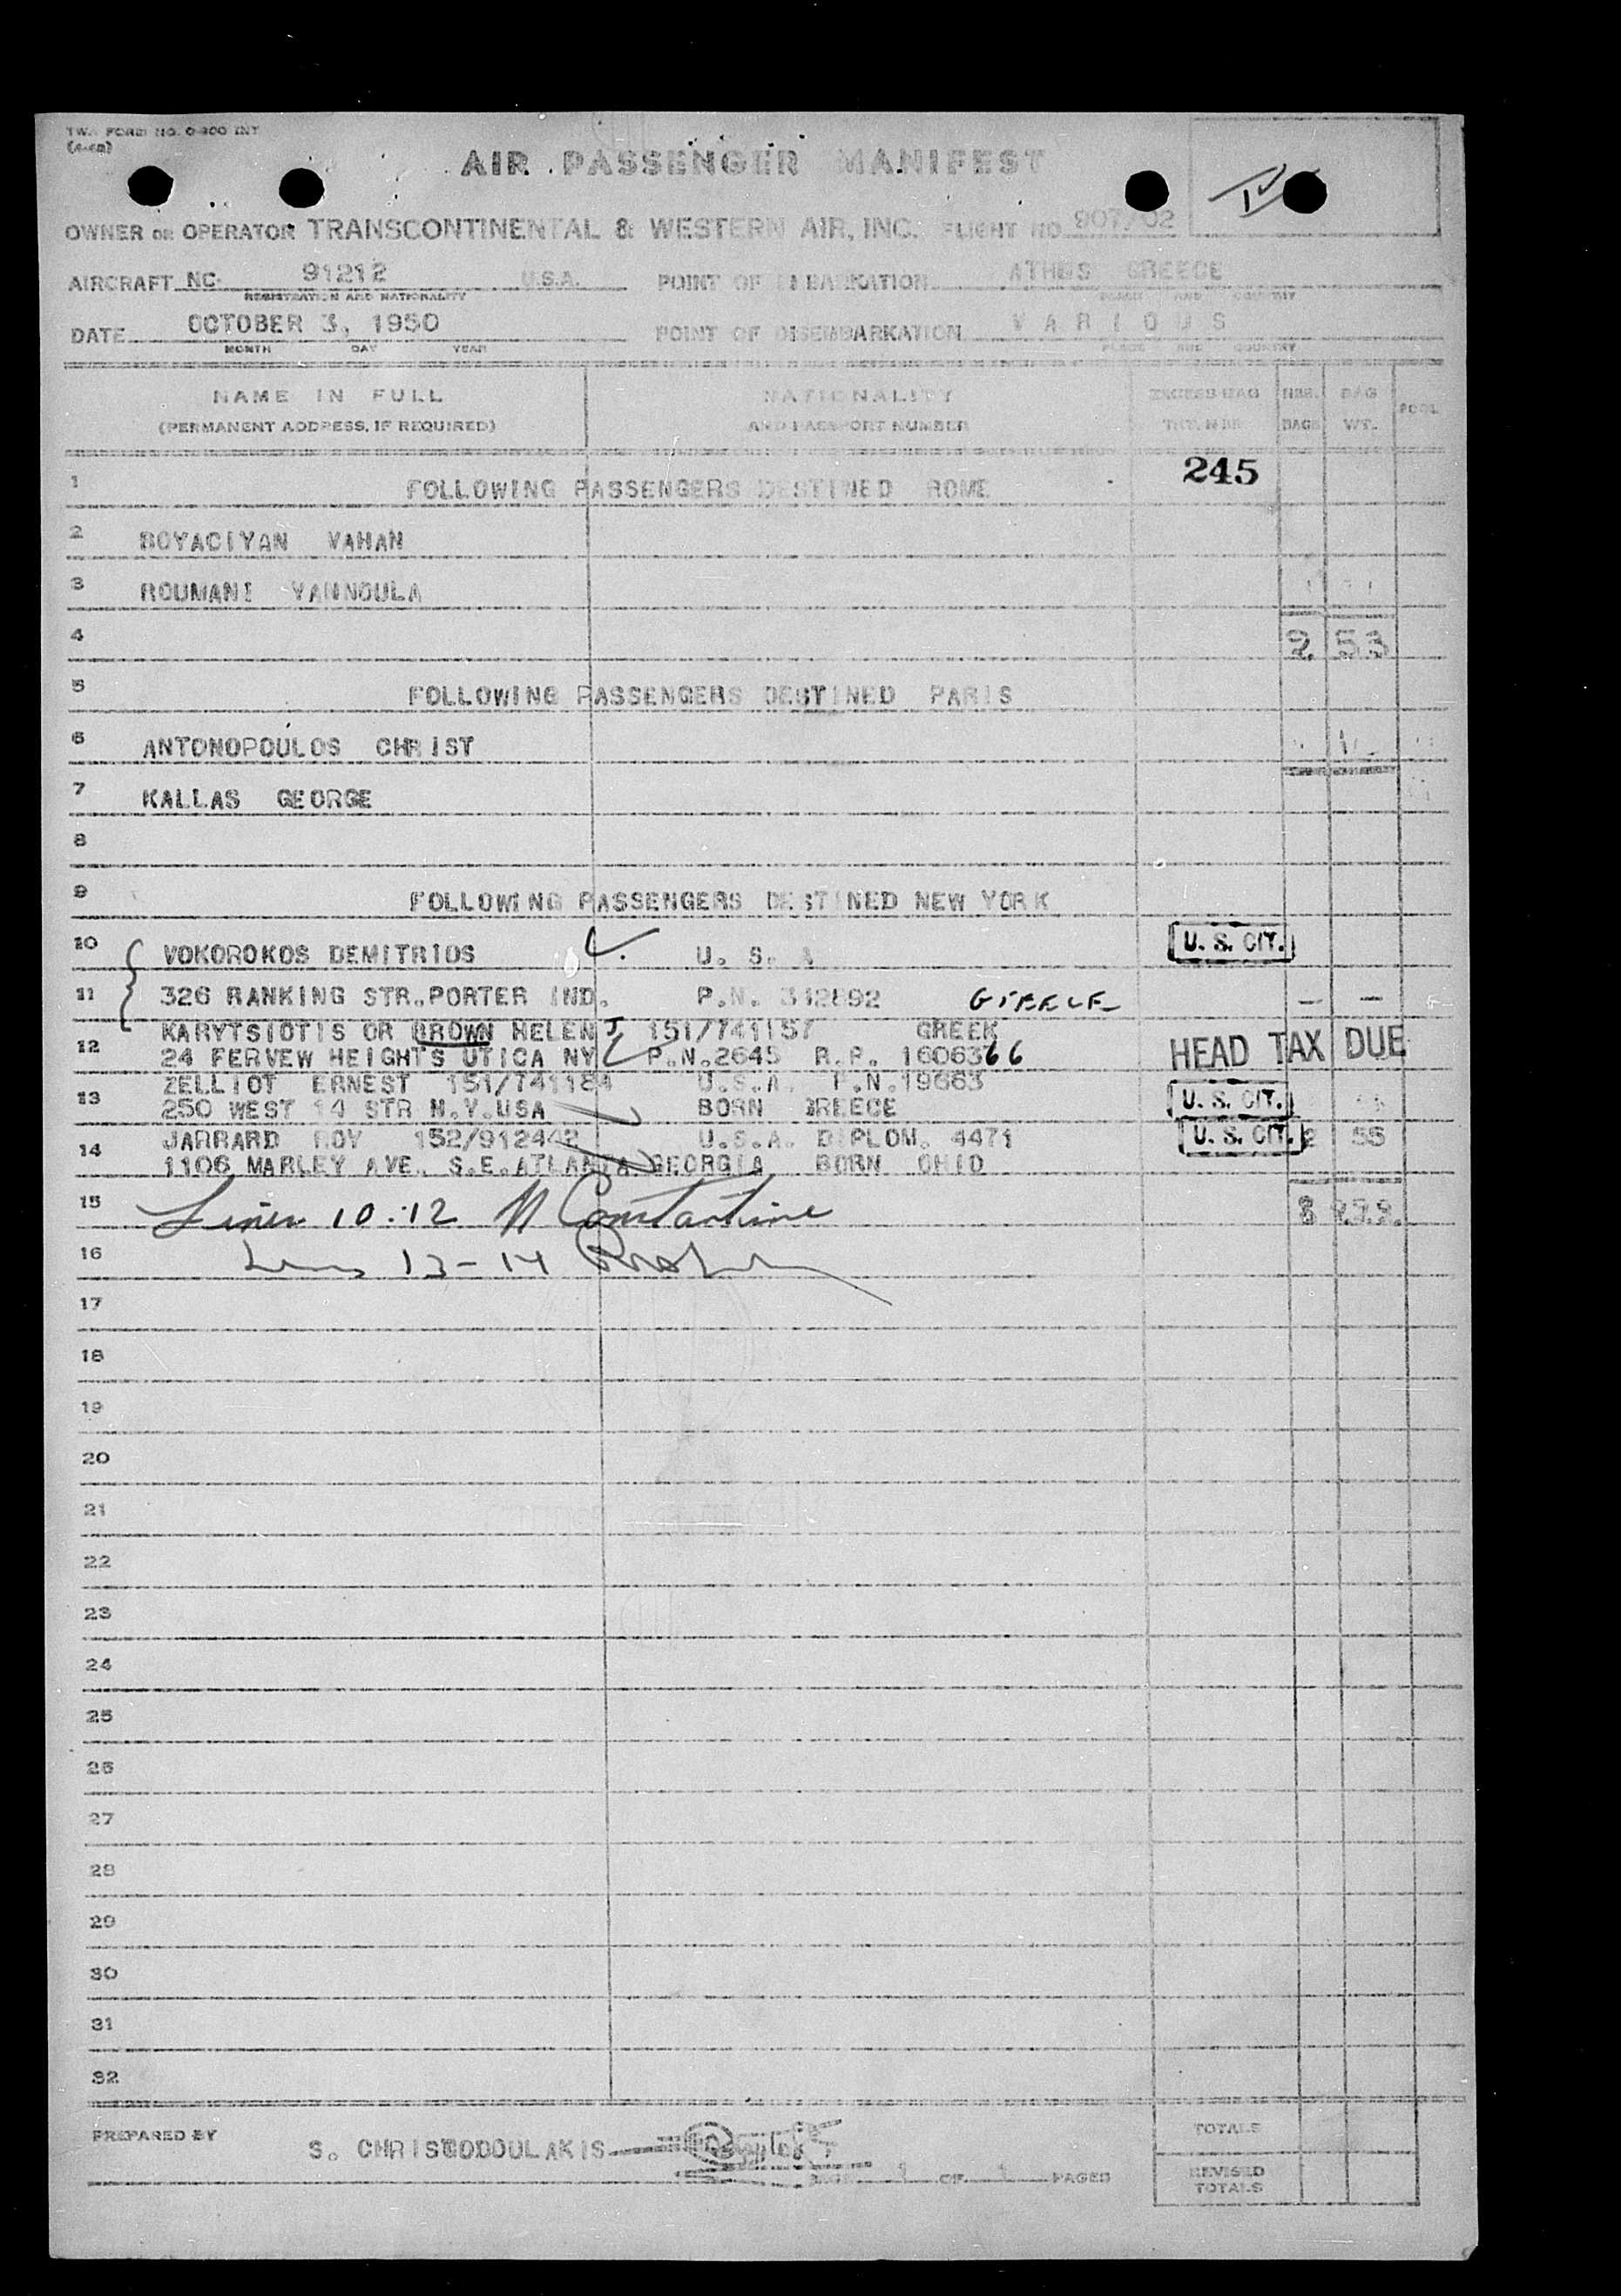 TWA FORM NO. 0-300 INT
AIR PASSENGER MANIFEST
IV
OWNER OR OPERATOR TRANSCONTINENTAL & WESTERN AIR, INC. FLIGHT NO 907/02
AIRCRAFT NC 91212 U.S.A. POINT OF EMBARKATION ATHENS GREECE
REGISTRATION AND NATIONALITY PLACE AND COUNTRY
DATE OCTOBER 3, 1950 POINT OF DISEMBARKATION VARIOUS
MONTH DAY YEAR PLACE AND COUNTRY
NAME IN FULL NATIONALITY EXCESS BAG NBR. BAG POOL
(PERMANENT ADDRESS, IF REQUIRED) AND PASSPORT NUMBER TKT. NBR. BAGS WT.
245
1 FOLLOWING PASSENGERS DESTINED ROME
2 BOYACIYAN VAHAN
3 ROUMANI YANNOULA
4 2 53
5 FOLLOWING PASSENGERS DESTINED PARIS
6 ANTONOPOULOS CHRIST
7 KALLAS GEORGE
8
9 FOLLOWING PASSENGERS DESTINED NEW YORK
10 VOKOROKOS DEMITRIOS U. S. A U. S. CIT.
11 326 RANKING STR.PORTER IND. P.N. 312892 GREECE — —
KARYTSIOTIS OR BROWN HELEN J 151/741157 GREEK
12 24 FERVEW HEIGHTS UTICA NY P.N.2645 R.P. 1606366 HEAD TAX DUE
ZELLIOT ERNEST 151/741184 U.S.A. P.N.19663
13 250 WEST 14 STR N.Y.USA BORN GREECE U. S. CIT.
JARRARD ROY 152/912442 U.S.A. DIPLOM. 4471 U. S. CIT. 2 55
14 1106 MARLEY AVE. S.E.ATLANTA GEORGIA BORN OHIO
15 Lines 10-12 N Constantine 8
16 Lines 13-14
17
18
19
20
21
22
23
24
25
26
27
28
29
30
31
32
PREPARED BY S. CHRISTODOULAKIS TOTALS
PAGE 1 OF 1 PAGES REVISED
TOTALS